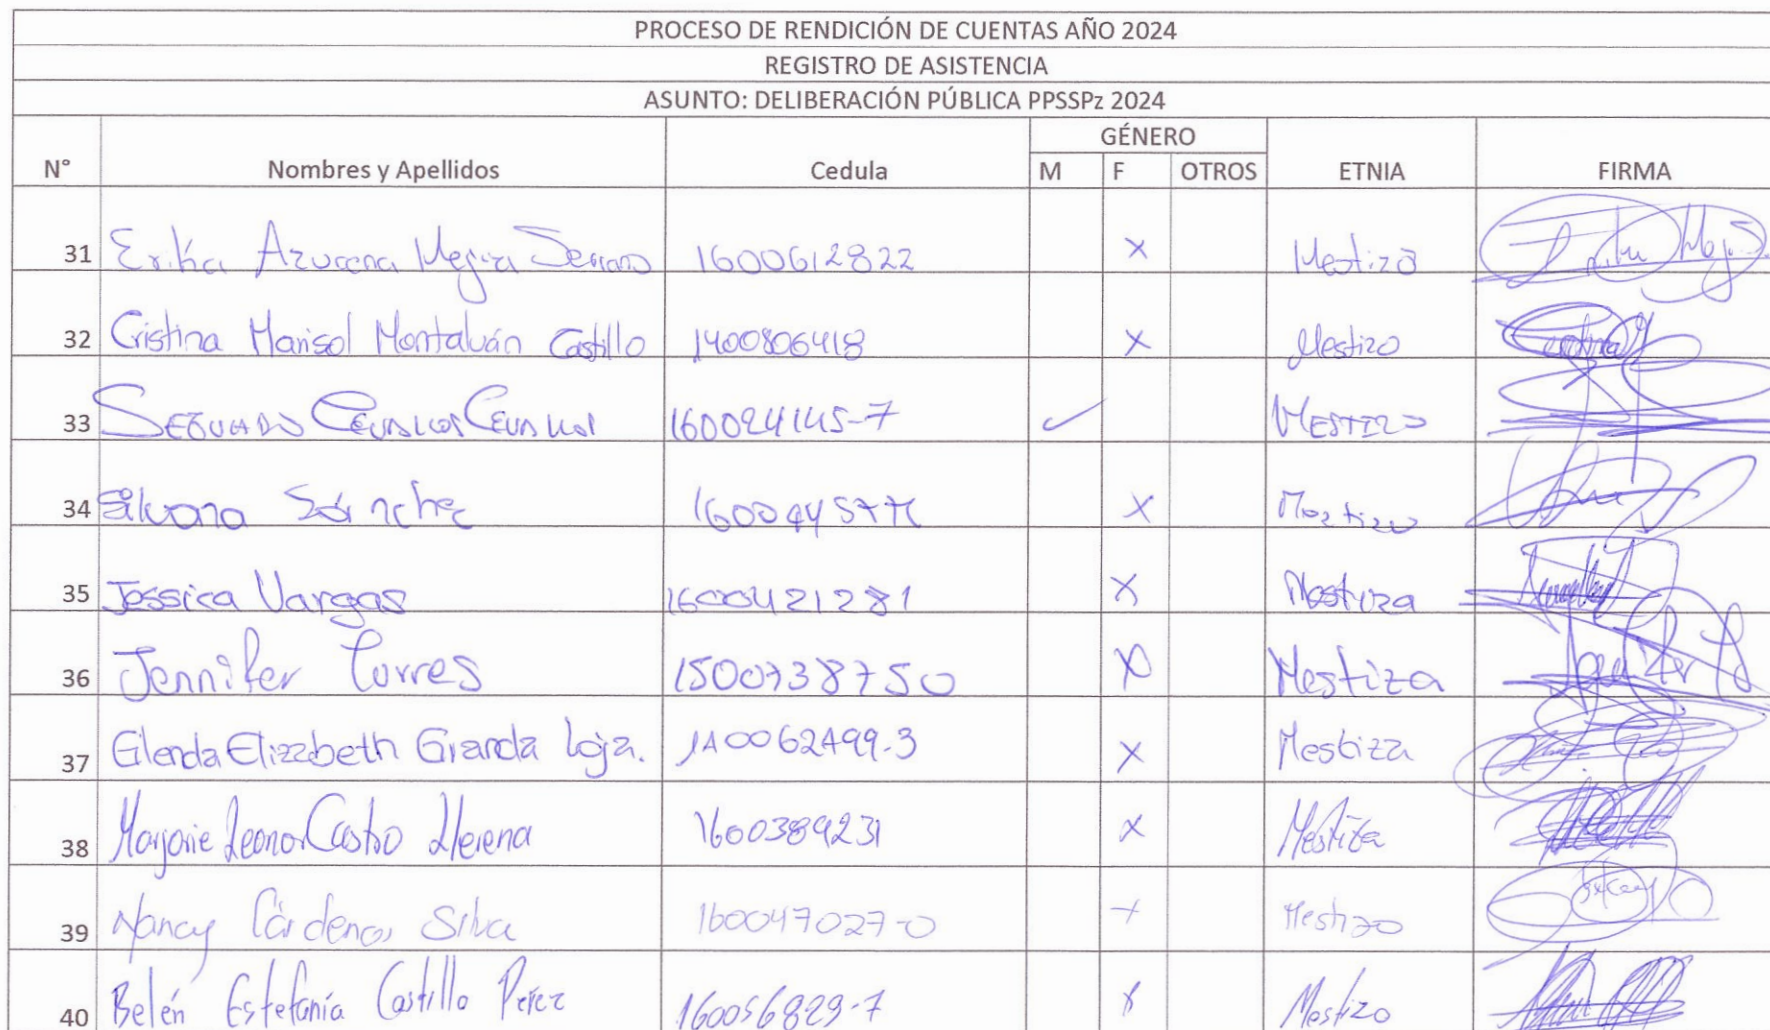 PROCESO DE RENDICIÓN DE CUENTAS AÑO 2024
REGISTRO DE ASISTENCIA
ASUNTO: DELIBERACIÓN PÚBLICA PPSSPz 2024
N° Nombres y Apellidos Cedula GÉNERO M F OTROS ETNIA FIRMA
31 Erika Azucena Mejia Serrano 1600612822 X Mestizo
32 Cristina Marisol Montalván Castillo 1400806418 X Mestizo
33 SEGUNDO CEVALLOS CEVALLOS 160024145-7 ✓ MESTIZO
34 Silvana Sánchez X Meztizo
35 Jessica Vargas 1600421281 X Mestiza
36 Jennifer Torres 1500738750 X Mestiza Jennifer
37 Glenda Elizabeth Granda Loja. 140062499-3 X Mestiza
38 Marjorie Leonor Castro Llerena 1600389231 X Mestiza
39 Nancy Cárdenas Silva 160047027-0 X Mestizo
40 Belén Estefanía Castillo Pérez 160056829-7 X Mestizo